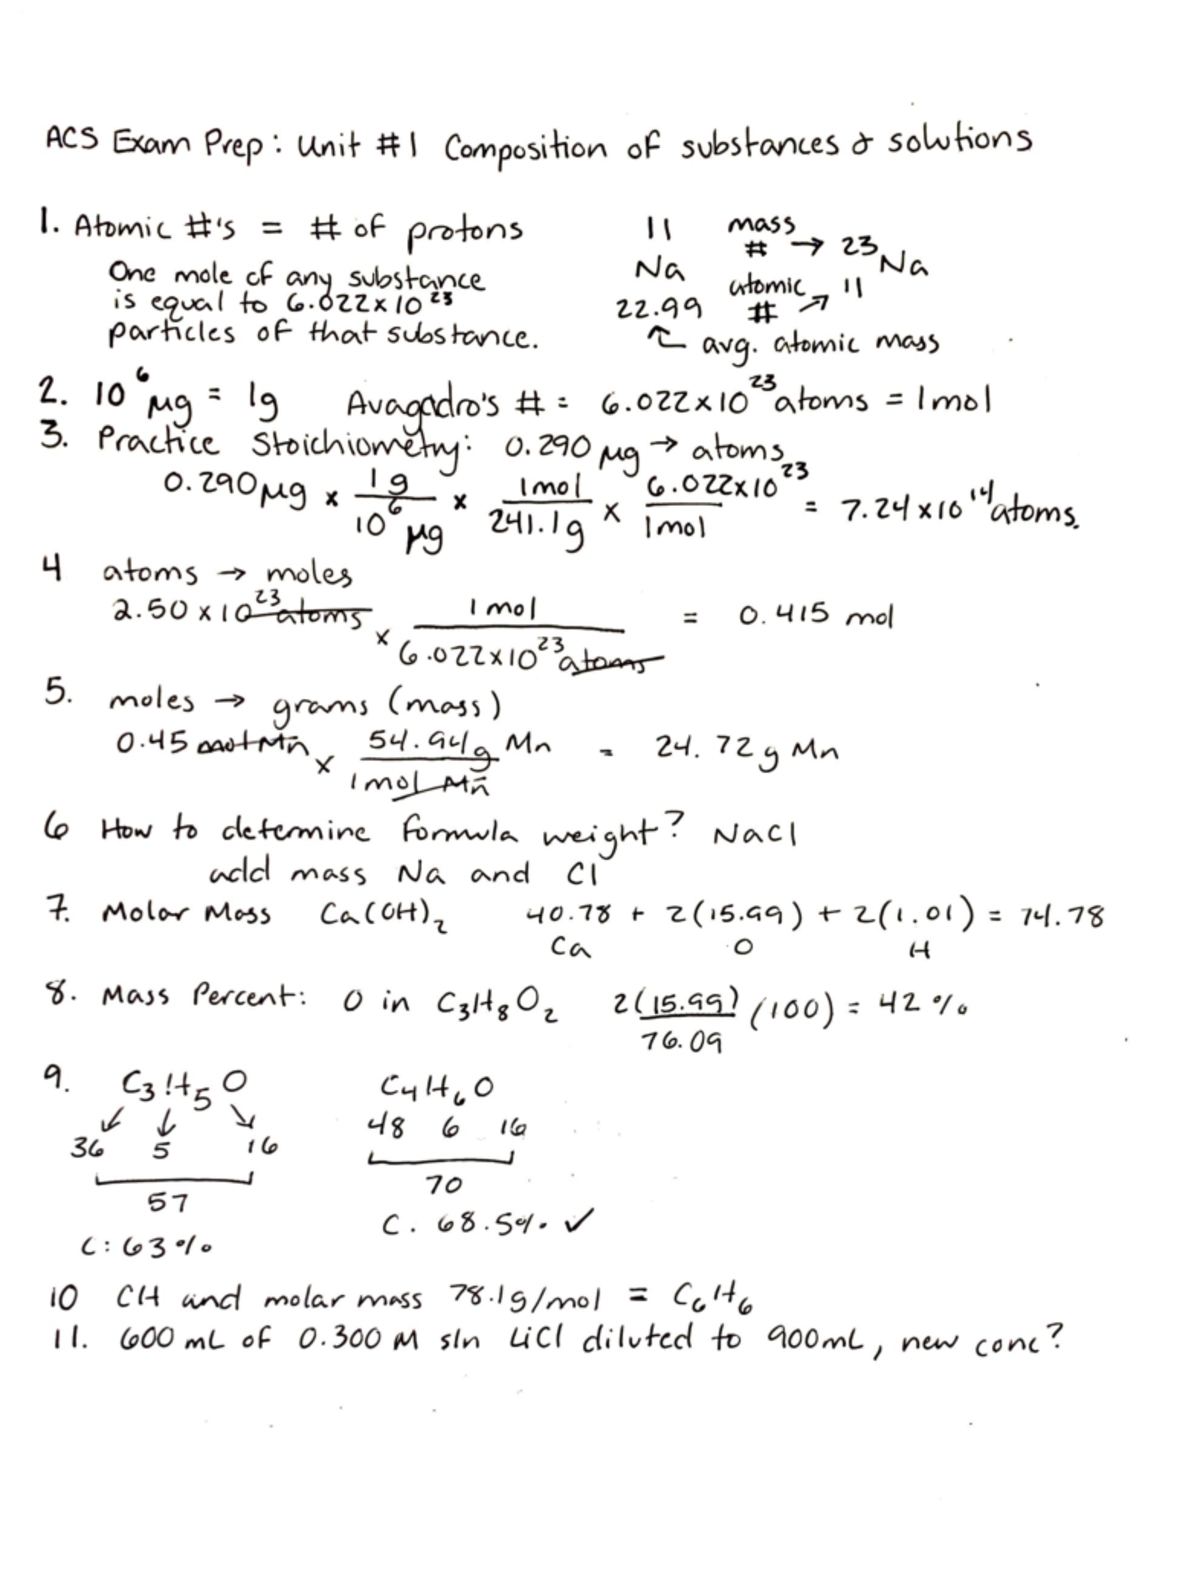 ACS Exam Prep: Unit #1 Composition of substances & solutions
1. Atomic #'s = # of protons
One mole of any substance
is equal to 6.022x10²³
particles of that substance.
11
Na
22.99
mass
# → 23 Na
atomic 11
# ↗
↑ avg. atomic mass
2. 10⁶ µg = 1g Avagadro's # = 6.022x10²³ atoms = 1mol
3. Practice Stoichiometry: 0.290 µg → atoms
0.290µg x 1g/10⁶ µg x 1mol/241.1g x 6.022x10²³/1mol = 7.24x10¹⁴ atoms.
4 atoms → moles
2.50 x 10²³ atoms x 1 mol/6.022x10²³ atoms = 0.415 mol
5. moles → grams (mass)
0.45 mol Mn x 54.94g Mn/1mol Mn = 24.72g Mn
6 How to determine formula weight? NaCl
add mass Na and Cl
7. Molar Mass Ca(OH)₂ 40.78 + 2(15.99) + 2(1.01) = 74.78
Ca O H
8. Mass Percent: O in C₃H₈O₂ 2(15.99)/76.09 (100) = 42%
9. C₃H₅O C₄H₆O
↙ ↓ ↘
36 5 16 48 6 16
57 70
C: 63% C. 68.5% ✓
10 CH and molar mass 78.1g/mol = C₆H₆
11. 600 mL of 0.300 M sln LiCl diluted to 900mL, new conc?